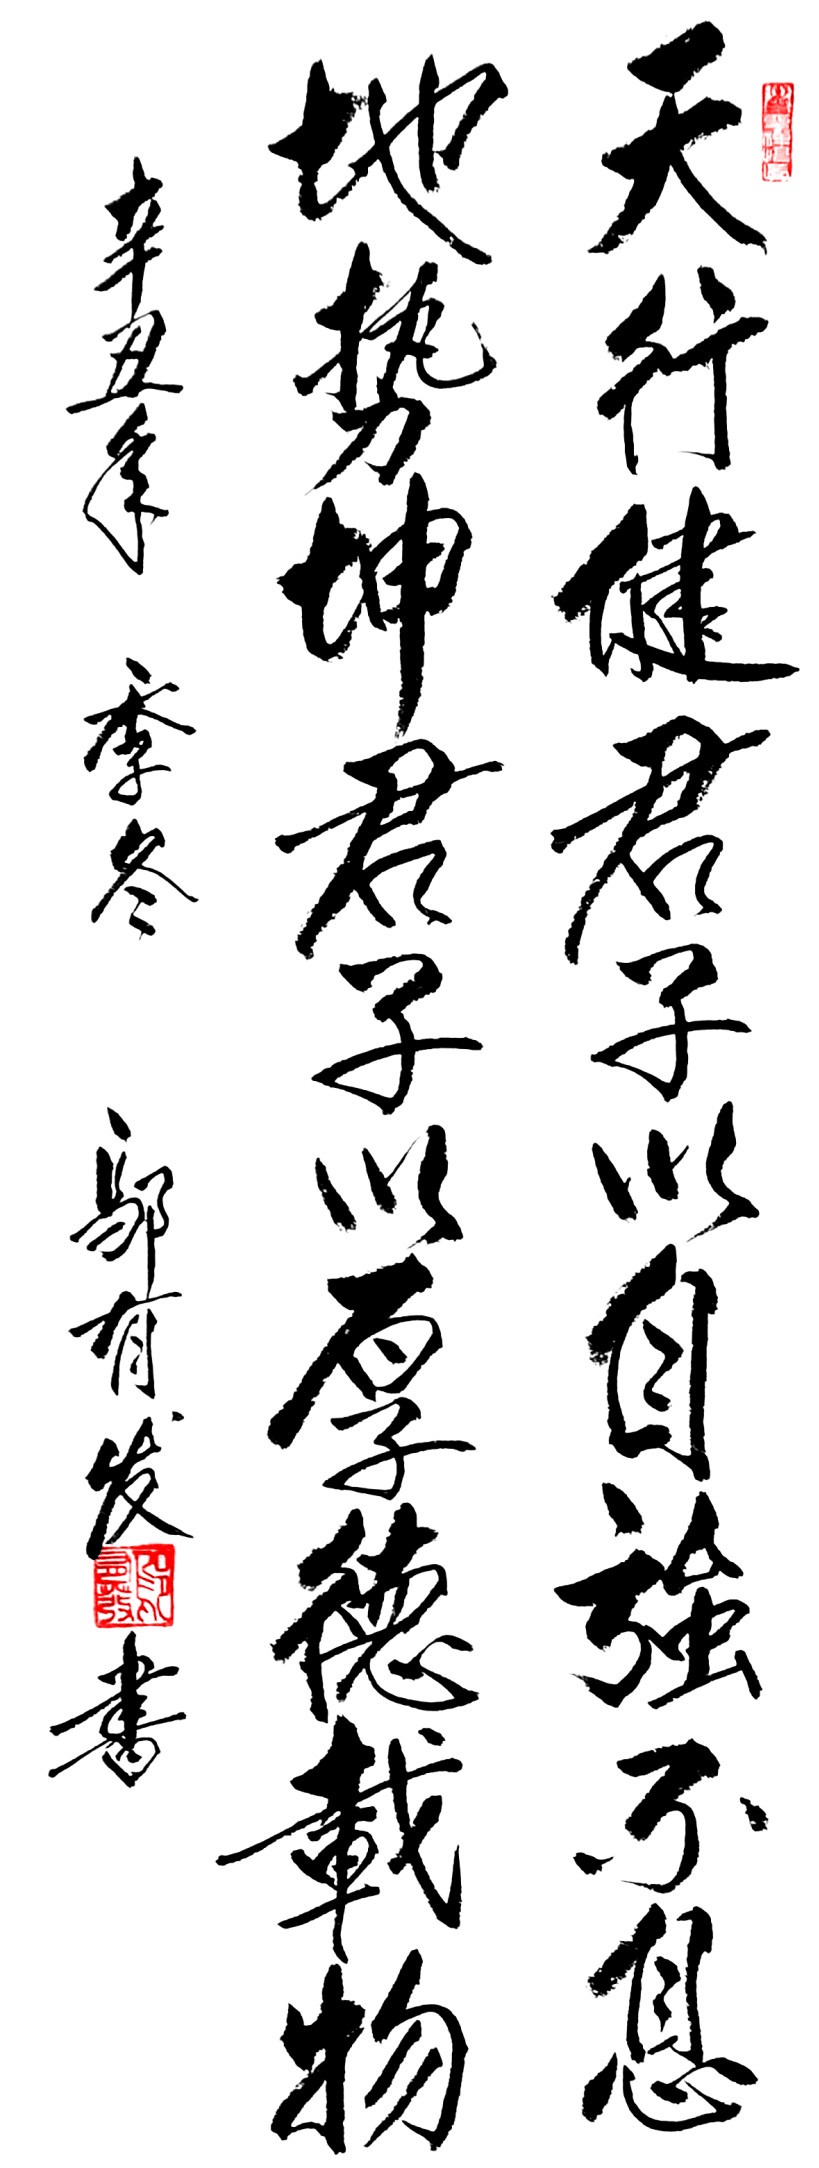 天行健君子以自強不息
地势坤君子以厚德載物
辛丑年 季冬 鄔有发書